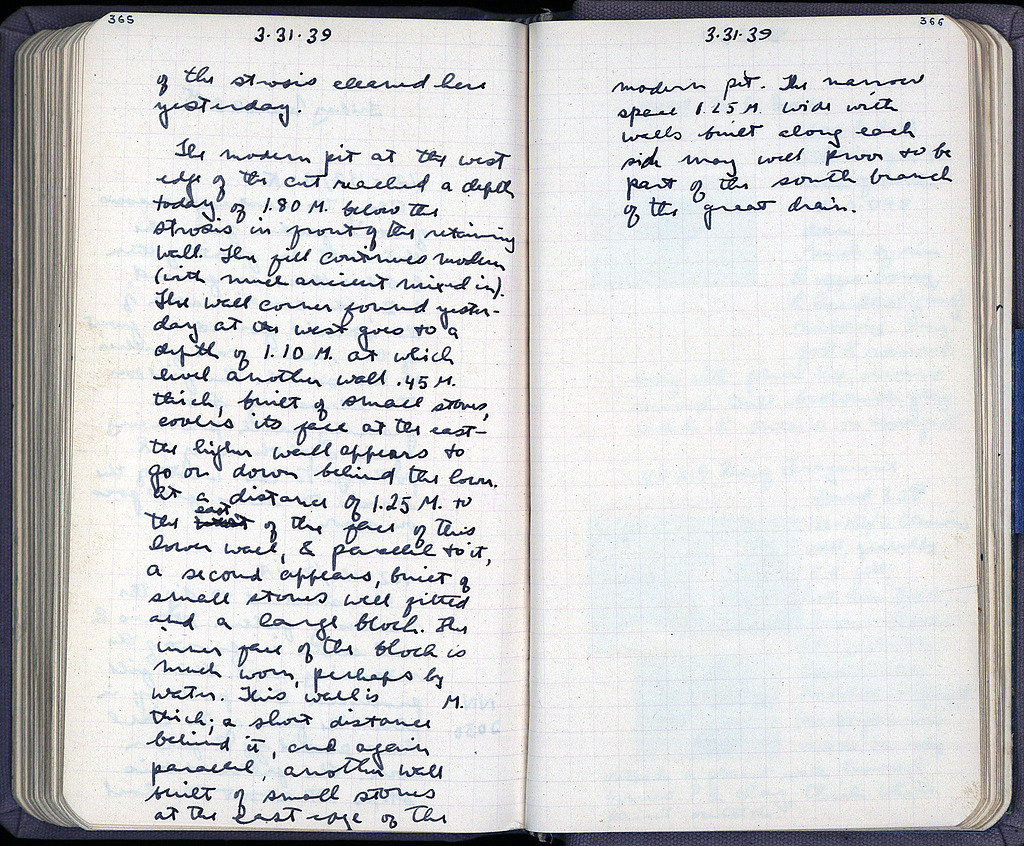 365
3·31·39
of the strosis cleared here
yesterday.
The modern pit at the west
edge of the cut reached a depth
today of 1.80 M. below the
strosis in front of the retaining
wall. The fill continues modern
(with much ancient mixed in).
The wall corner found yester-
day at the west goes to a
depth of 1.10 M. at which
level another wall .45 M.
thick, built of small stones,
covers its face at the east—
the higher wall appears to
go on down behind the lower.
At a distance of 1.25 M. to
the east of the face of this
lower wall, & parallel to it,
a second appears, built of
small stones well fitted
and a large block. The
inner face of the block is
much worn, perhaps by
water. This wall is M.
thick; a short distance
behind it, and again
parallel, another wall
built of small stones
at the east edge of the
366
3·31·39
modern pit. The narrow
space 1.25 M. wide with
walls built along each
side may well prove to be
part of the south branch
of the great drain.